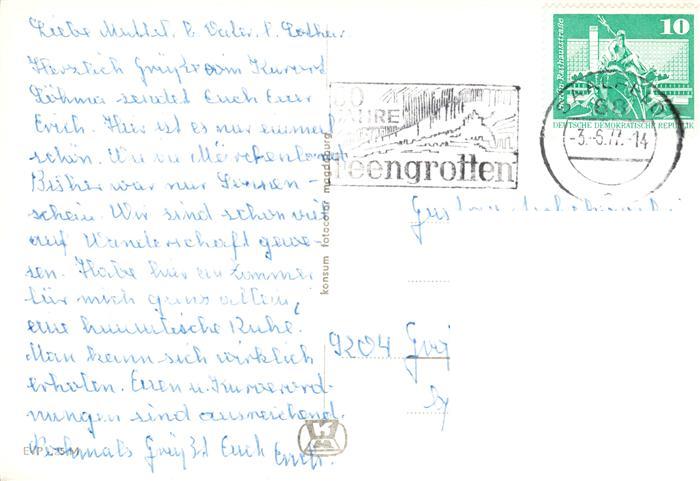 Liebe Mutter, V. Vater, Lothar
Herzlich Grüße vom Kurort
Löhma sendet Euch Euer
Erich. Hier ist es nur einmal
schön. Wie im Märchenland
Bisher war nur Sonnen-
schein. Wir sind schon viel
auf Wanderschaft gewe-
sen. Habe hier ein Zimmer
für mich ganz allein,
eine himmlische Ruhe.
Man kann sich wirklich
erholen. Essen u. Kurverord-
nungen sind ausreichend.
Nochmals Grüßt Euch Erich.
EVP
konsum fotocolor magdeburg
JAHRE
Feengrotten
10
Berlin-Rathausstraße
DEUTSCHE DEMOKRATISCHE REPUBLIK
SAALFELD
68
-3.-6.77.-14
9204